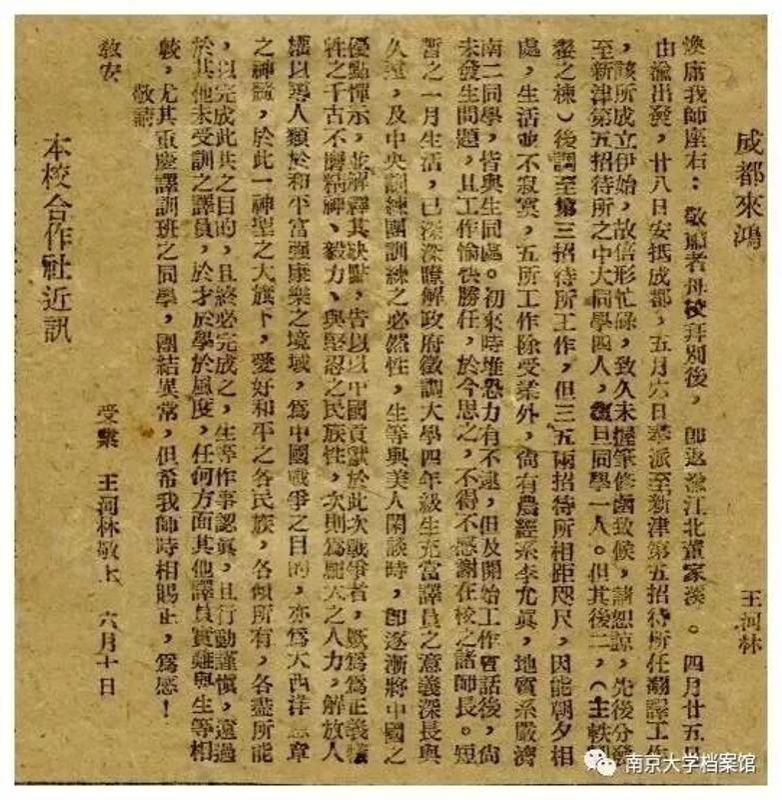 成都來鴻
王河林
煥庸我師座右：敬肅者母校拜別後，卽返渝江北董家溪。四月廿五日
由渝出發，廿八日安抵成都，五月六日奉派至新津第五招待所任翻譯工作
，該所成立伊始，故倍形忙碌，致久未握筆修函致候，諸恕諒，先後分發
至新津第五招待所之中大同學四人，復旦同學一人。但其後二，（主軼
之棟）後調至第三招待所工作，但三五兩招待所相距咫尺，因能朝夕相
處，生活並不寂寞，五所工作除受業外，尙有農經系李尤眞，地質系嚴濟
南二同學，皆與生同處。初來時堆恐力有不逮，但及開始工作會話後，尙
未發生問題，且工作愉快勝任，於今思之，不得不感謝在校之諸師長。短
暫之一月生活，已深深瞭解政府徵調大學四年級生充當譯員之意義深長與
久遠，及中央訓練團訓練之必然性，生等與美人閑談時，卽逐漸將中國之
優點憚示，並解釋其缺點，告以以中國貢獻於此次戰爭者，厥爲爲正義犧
牲之千古不磨精神、毅力、與堅忍之民族性，次則爲龐大之人力，解放人
類以導人類於和平富强康樂之境域，爲中國戰爭之目的，亦爲大西洋憲章
之神髓，於此一神聖之大旗下，愛好和平之各民族，各傾所有，各盡所能
，以完成此共之目的，且終必完成之，生等作事認眞，且行動謹愼，遠過
於其他未受訓之譯員，於才於學於風度，任何方面其他譯員實難與生等相
較，尤其重慶譯訓班之同學，團結異常，但希我師時相賜正，爲感！
敬請
敎安
受業 王河林敬上 六月十日
本校合作社近訊
南京大学档案馆